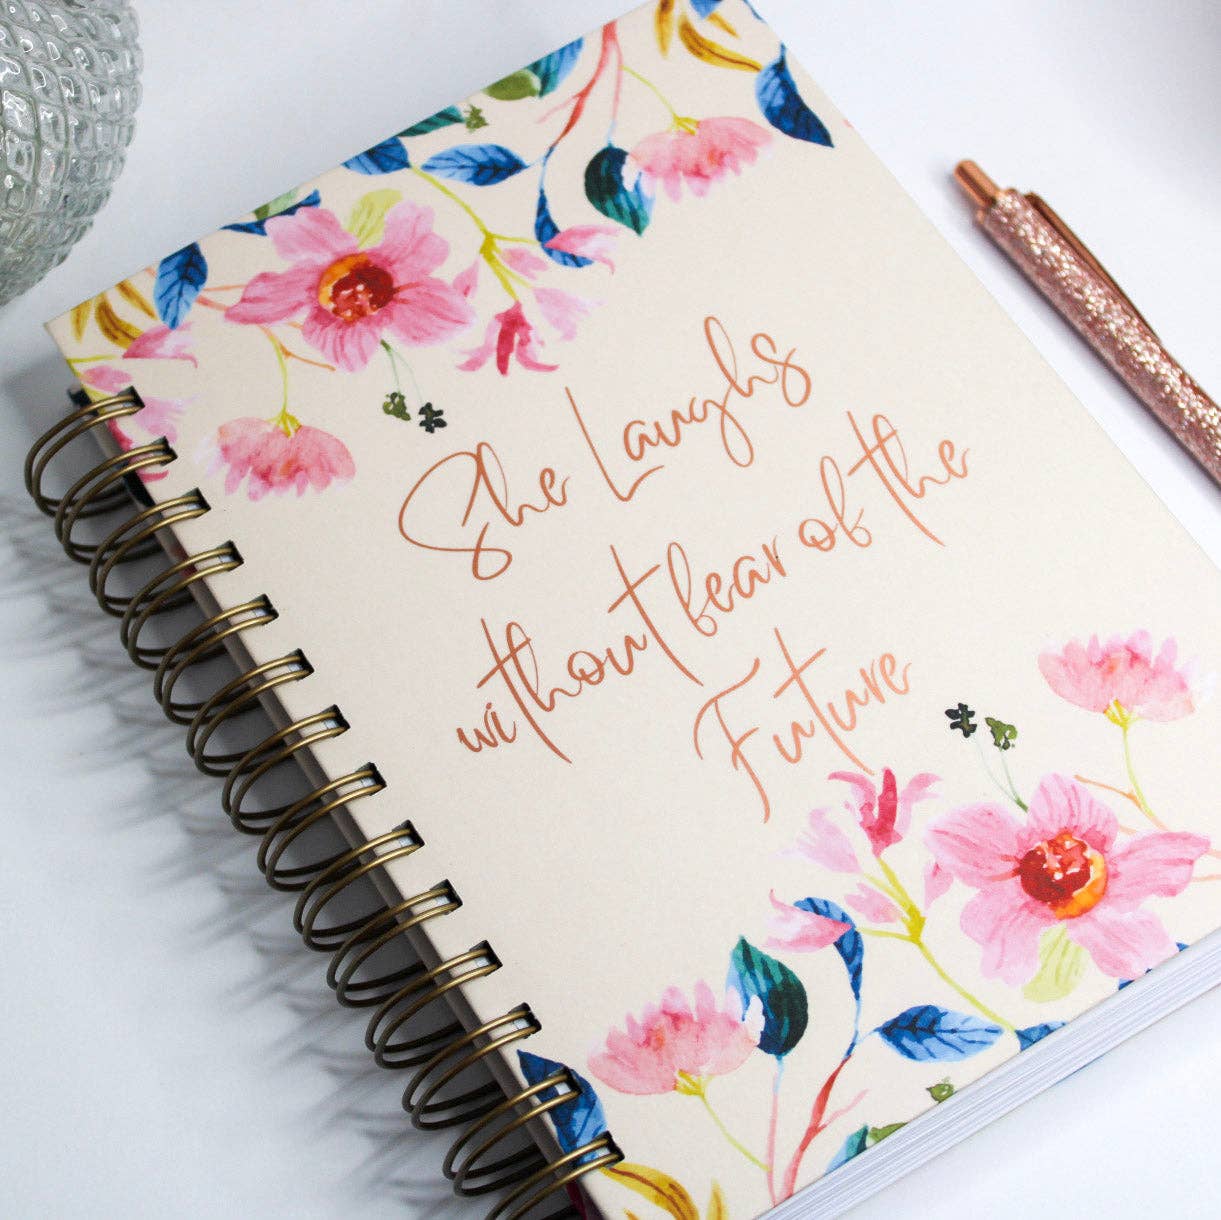 She Laughs
without fear of the
Future